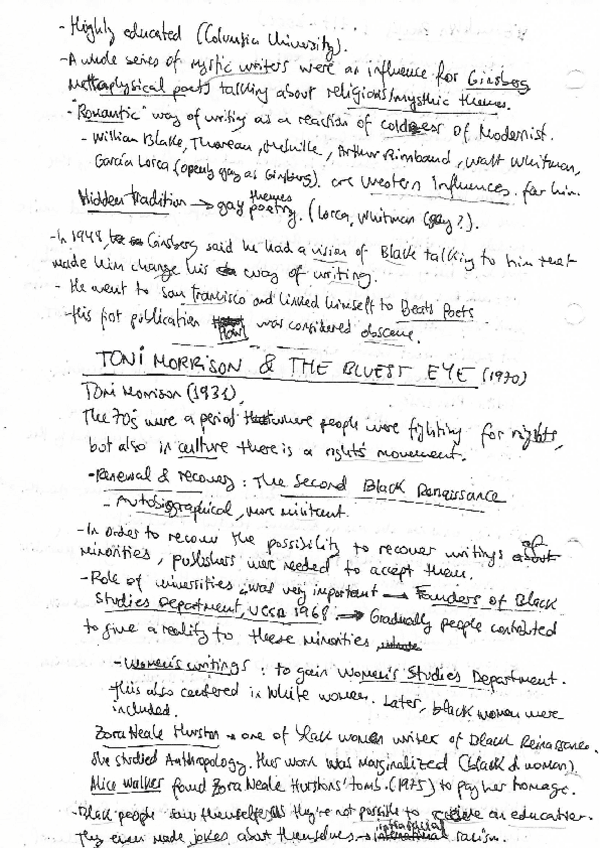 - Highly educated (Columbia University).
- A whole series of mystic writers were an influence for Ginsberg
Metaphysical poets talking about religious/mysthic themes.
- "Romantic" way of writing as a reaction of coldness of Modernist.
- William Blake, Thoreau, Melville, Arthur Rimbaud, Walt Whitman,
García Lorca (openly gay as Ginsberg). are Western Influences for him.
Hidden Tradition → gay themes poetry. (Lorca, Whitman (gay?).
- In 1948, Ginsberg said he had a vision of Black talking to him that
made him change his way of writing.
- He went to San Francisco and linked himself to Beats Poets
- His first publication Howl was considered obscene.
TONI MORRISON & THE BLUEST EYE (1970)
Toni Morrison (1931),
The 70's were a period where people were fighting for rights,
but also in culture there is a rights movement.
- Renewal & recovery: The Second Black Renaissance
- Autobiographical, more militant.
- In order to recover the possibility to recover writings of
minorities, publishers were needed to accept them.
- Role of universities was very important → Founders of Black
Studies Department, 1968 → Gradually people contributed
to give a reality to these minorities
- Women's writings: to gain Women's Studies Department.
This also centered in White women. Later, black women were
included.
Zora Neale Hurston → one of black women writer of Black Renaissance.
She studied Anthropology. Her work was marginalized (black & woman)
Alice Walker found Zora Neale Hurstons' tomb. (1975) to pay her homage.
- Black people saw themselves as they're not possible to an education.
They even made jokes about themselves → racism.